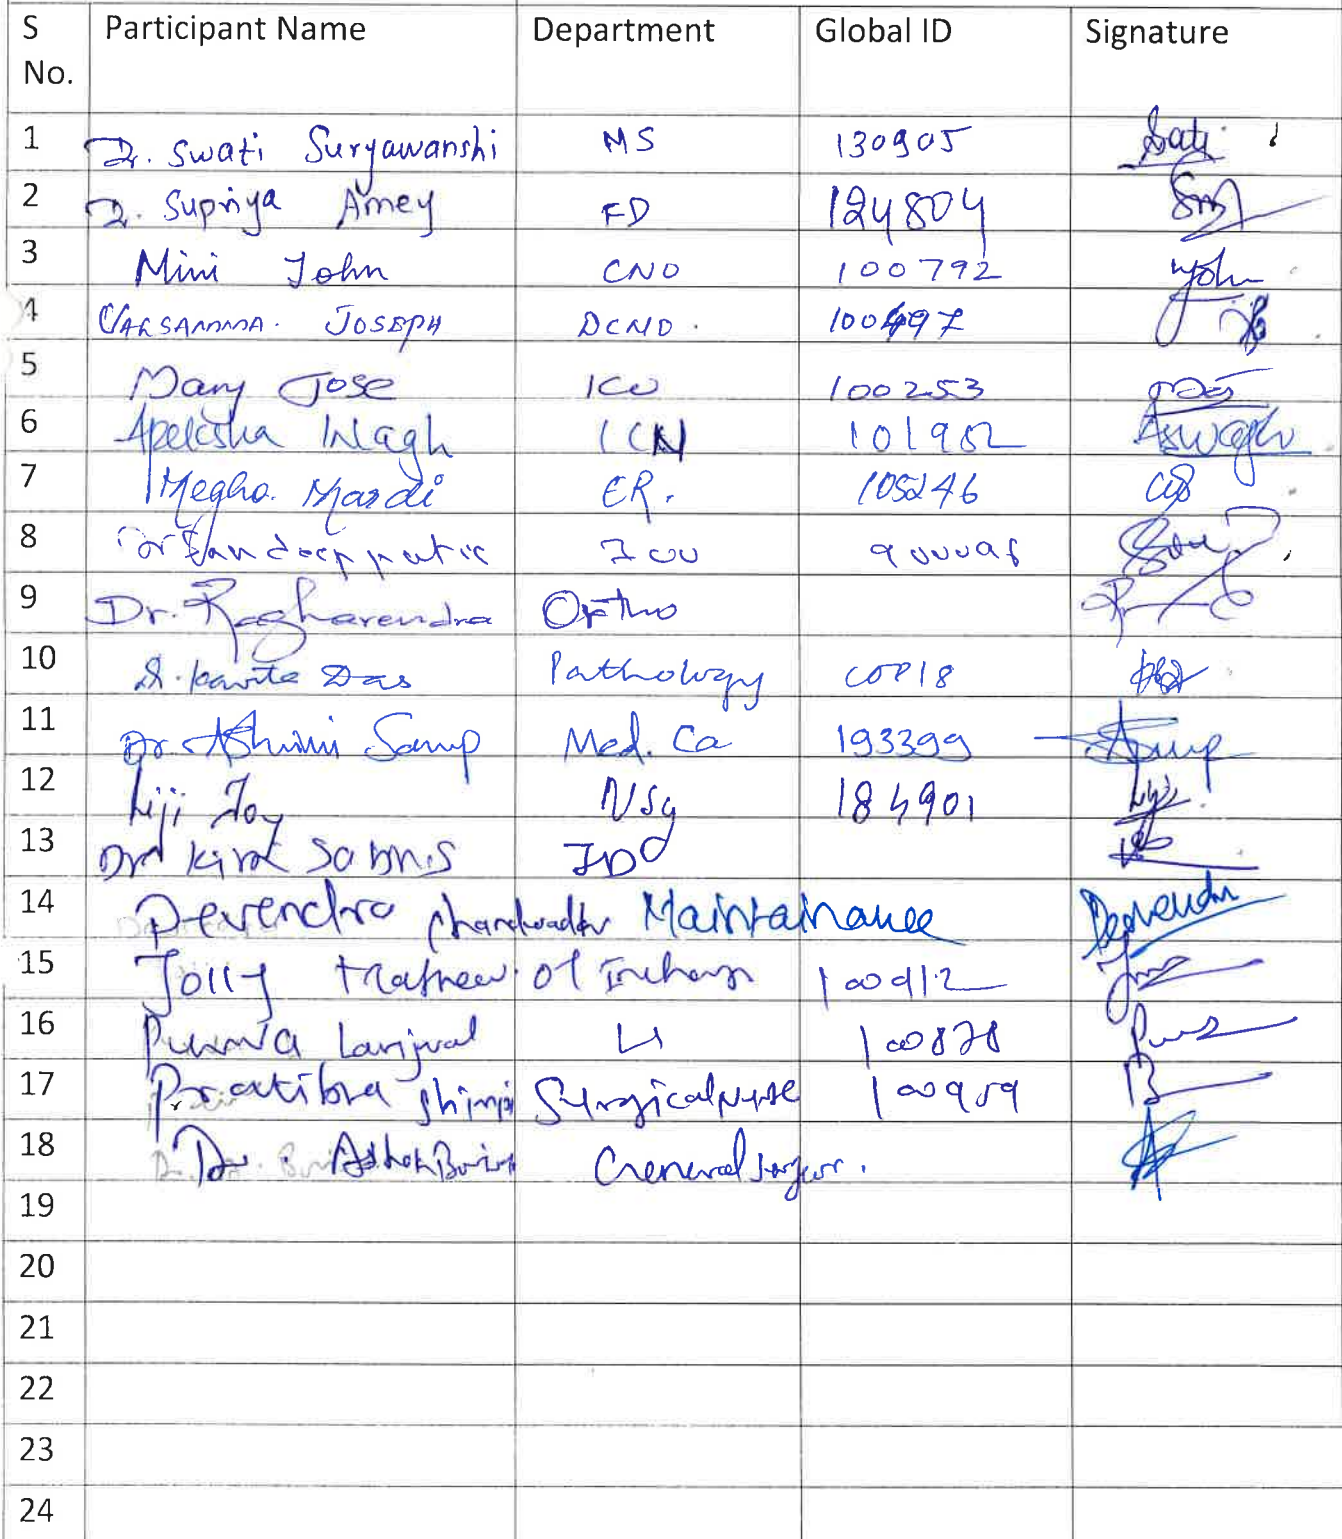 S No. Participant Name Department Global ID Signature
1 Dr. Swati Suryawanshi MS 130905
2 Dr. Supriya Amey FD 124804
3 Mini John CNO 100792 John
4 VARSAMMA. JOSEPH DCNO. 100497
5 Mary Jose ICU 100253
6 Apeksha Wagh ICN 101952 Aswagh
7 Megha. Mardi ER. 105246
8 ICU
9 Dr. Raghavendra Ortho
10 Dr. Kavita Das Pathology
11 Dr. Ashwini Sarup Med. Ca 193399
12 Liji Joy Nsg 184901
13 Dr Kiran Sabnis
14 Devendra Maintainance Devendra
15 Jolly Mathew OT Incharge 100912
16 Purva 100878
17 Pratibha Shimpi Surgical Nurse 100959
18 Dr. Ashok General Surgeon.
19
20
21
22
23
24